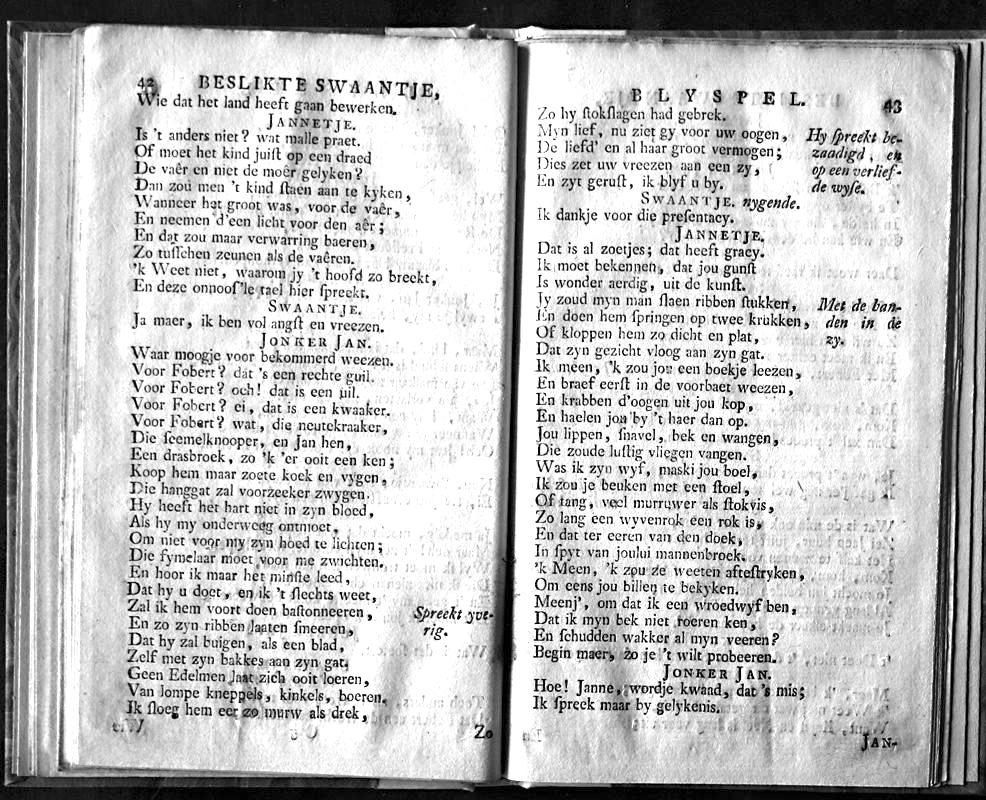 42 BESLIKTE SWAANTJE,
Wie dat het land heeft gaan bewerken.
JANNETJE.
Is 't anders niet? wat malle praet.
Of moet het kind juiſt op een draed
De vaêr en niet de moêr gelyken?
Dan zou men 't kind ſtaen aan te kyken,
Wanneer het groot was, voor de vaêr,
En neemen d'een licht voor den aêr;
En dat zou maar verwarring baeren,
Zo tuſſchen zeunen als de vaêren.
'k Weet niet, waarom jy 't hoofd zo breekt,
En deze onnooſ'le tael hier ſpreekt.
SWAANTJE.
Ja maer, ik ben vol angſt en vreezen.
JONKER JAN.
Waar moogje voor bekommerd weezen.
Voor Fobert? dat 's een rechte guil.
Voor Fobert? och! dat is een uil.
Voor Fobert? ei, dat is een kwaaker.
Voor Fobert? wat, die neutekraaker,
Die ſeemelknooper, en Jan hen,
Een drasbroek, zo 'k 'er ooit een ken;
Koop hem maar zoete koek en vygen,
Die hanggat zal voorzeeker zwygen.
Hy heeft het hart niet in zyn bloed,
Als hy my onderweeg ontmoet,
Om niet voor my zyn hoed te lichten;
Die fymelaar moet voor me zwichten.
En hoor ik maar het minſte leed,
Dat hy u doet, en ik 't ſlechts weet,
Zal ik hem voort doen baſtonneeren, Spreekt yve-
En zo zyn ribben laaten ſmeeren, rig.
Dat hy zal buigen, als een blad,
Zelf met zyn bakkes aan zyn gat.
Geen Edelmen laat zich ooit loeren,
Van lompe kneppels, kinkels, boeren.
Ik ſloeg hem eer zo murw als drek,
Zo
BLYSPEL. 43
Zo hy ſtokſlagen had gebrek.
Myn lief, nu ziet gy voor uw oogen, Hy ſpreekt be-
De liefd' en al haar groot vermogen; zaadigd, en
Dies zet uw vreezen aan een zy, op een verlief-
En zyt geruſt, ik blyf u by. de wyſe.
SWAANTJE. nygende.
Ik dankje voor die preſentacy.
JANNETJE.
Dat is al zoetjes; dat heeft gracy.
Ik moet bekennen, dat jou gunſt
Is wonder aerdig, uit de kunſt.
Jy zoud myn man ſlaen ribben ſtukken, Met de han-
En doen hem ſpringen op twee krukken, den in de
Of kloppen hem zo dicht en plat, zy.
Dat zyn gezicht vloog aan zyn gat.
Ik meen, 'k zou jou een boekje leezen,
En braef eerſt in de voorbaet weezen,
En krabben d'oogen uit jou kop,
En haelen jou by 't haer dan op.
Jou lippen, ſnavel, bek en wangen,
Die zoude luſtig vliegen vangen.
Was ik zyn wyf, maski jou boel,
Ik zou je beuken met een ſtoel,
Of tang, veel murruwer als ſtokvis,
Zo lang een wyvenrok een rok is,
En dat ter eeren van den doek,
In ſpyt van joului mannenbroek.
'k Meen, 'k zou ze weeten afteſtryken,
Om eens jou billen te bekyken.
Meenj', om dat ik een vroedwyf ben,
Dat ik myn bek niet roeren ken,
En ſchudden wakker al myn veeren?
Begin maer, zo je 't wilt probeeren.
JONKER JAN.
Hoe! Janne, wordje kwaad, dat 's mis;
Ik ſpreek maar by gelykenis.
JAN-